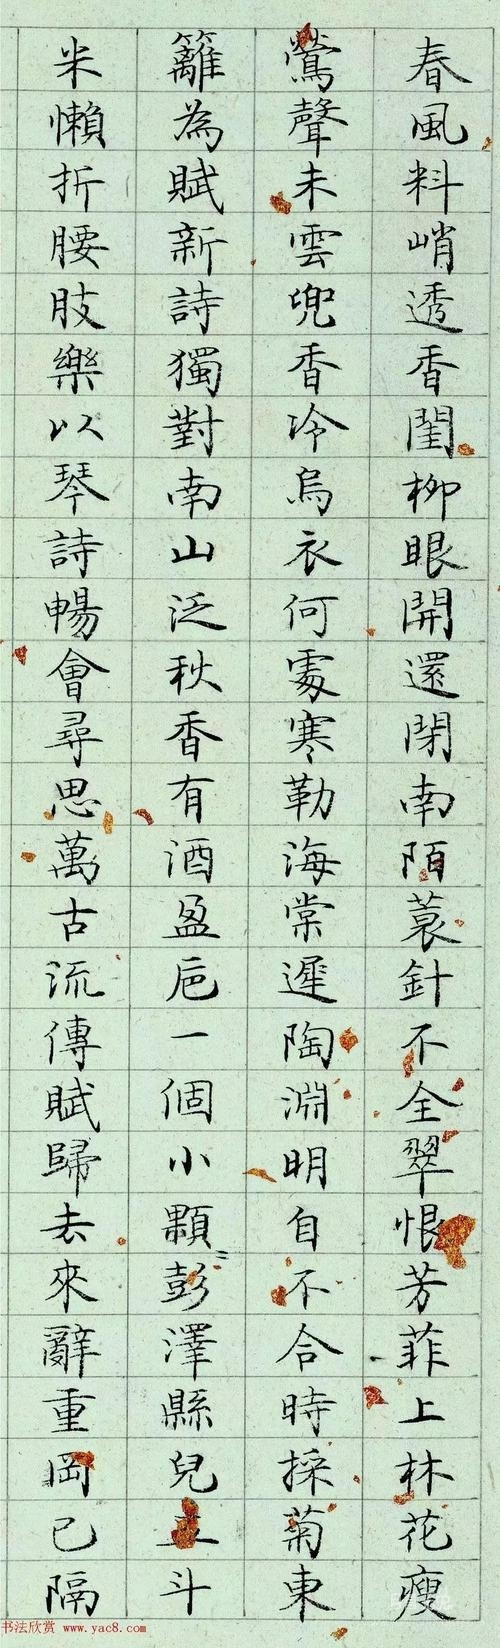 春風料峭透香閨柳眼開還閉南陌蓑針不全翠恨芳菲上林花瘦
鶯聲未雲兜香冷烏衣何處寒勒海棠遲陶淵明自不合時採菊東
籬為賦新詩獨對南山泛秋香有酒盈卮一個小顆彭澤縣兒五斗
米懶折腰肢樂以琴詩暢會尋思萬古流傳賦歸去來辭重岡已隔
书法欣赏 www.yac8.com